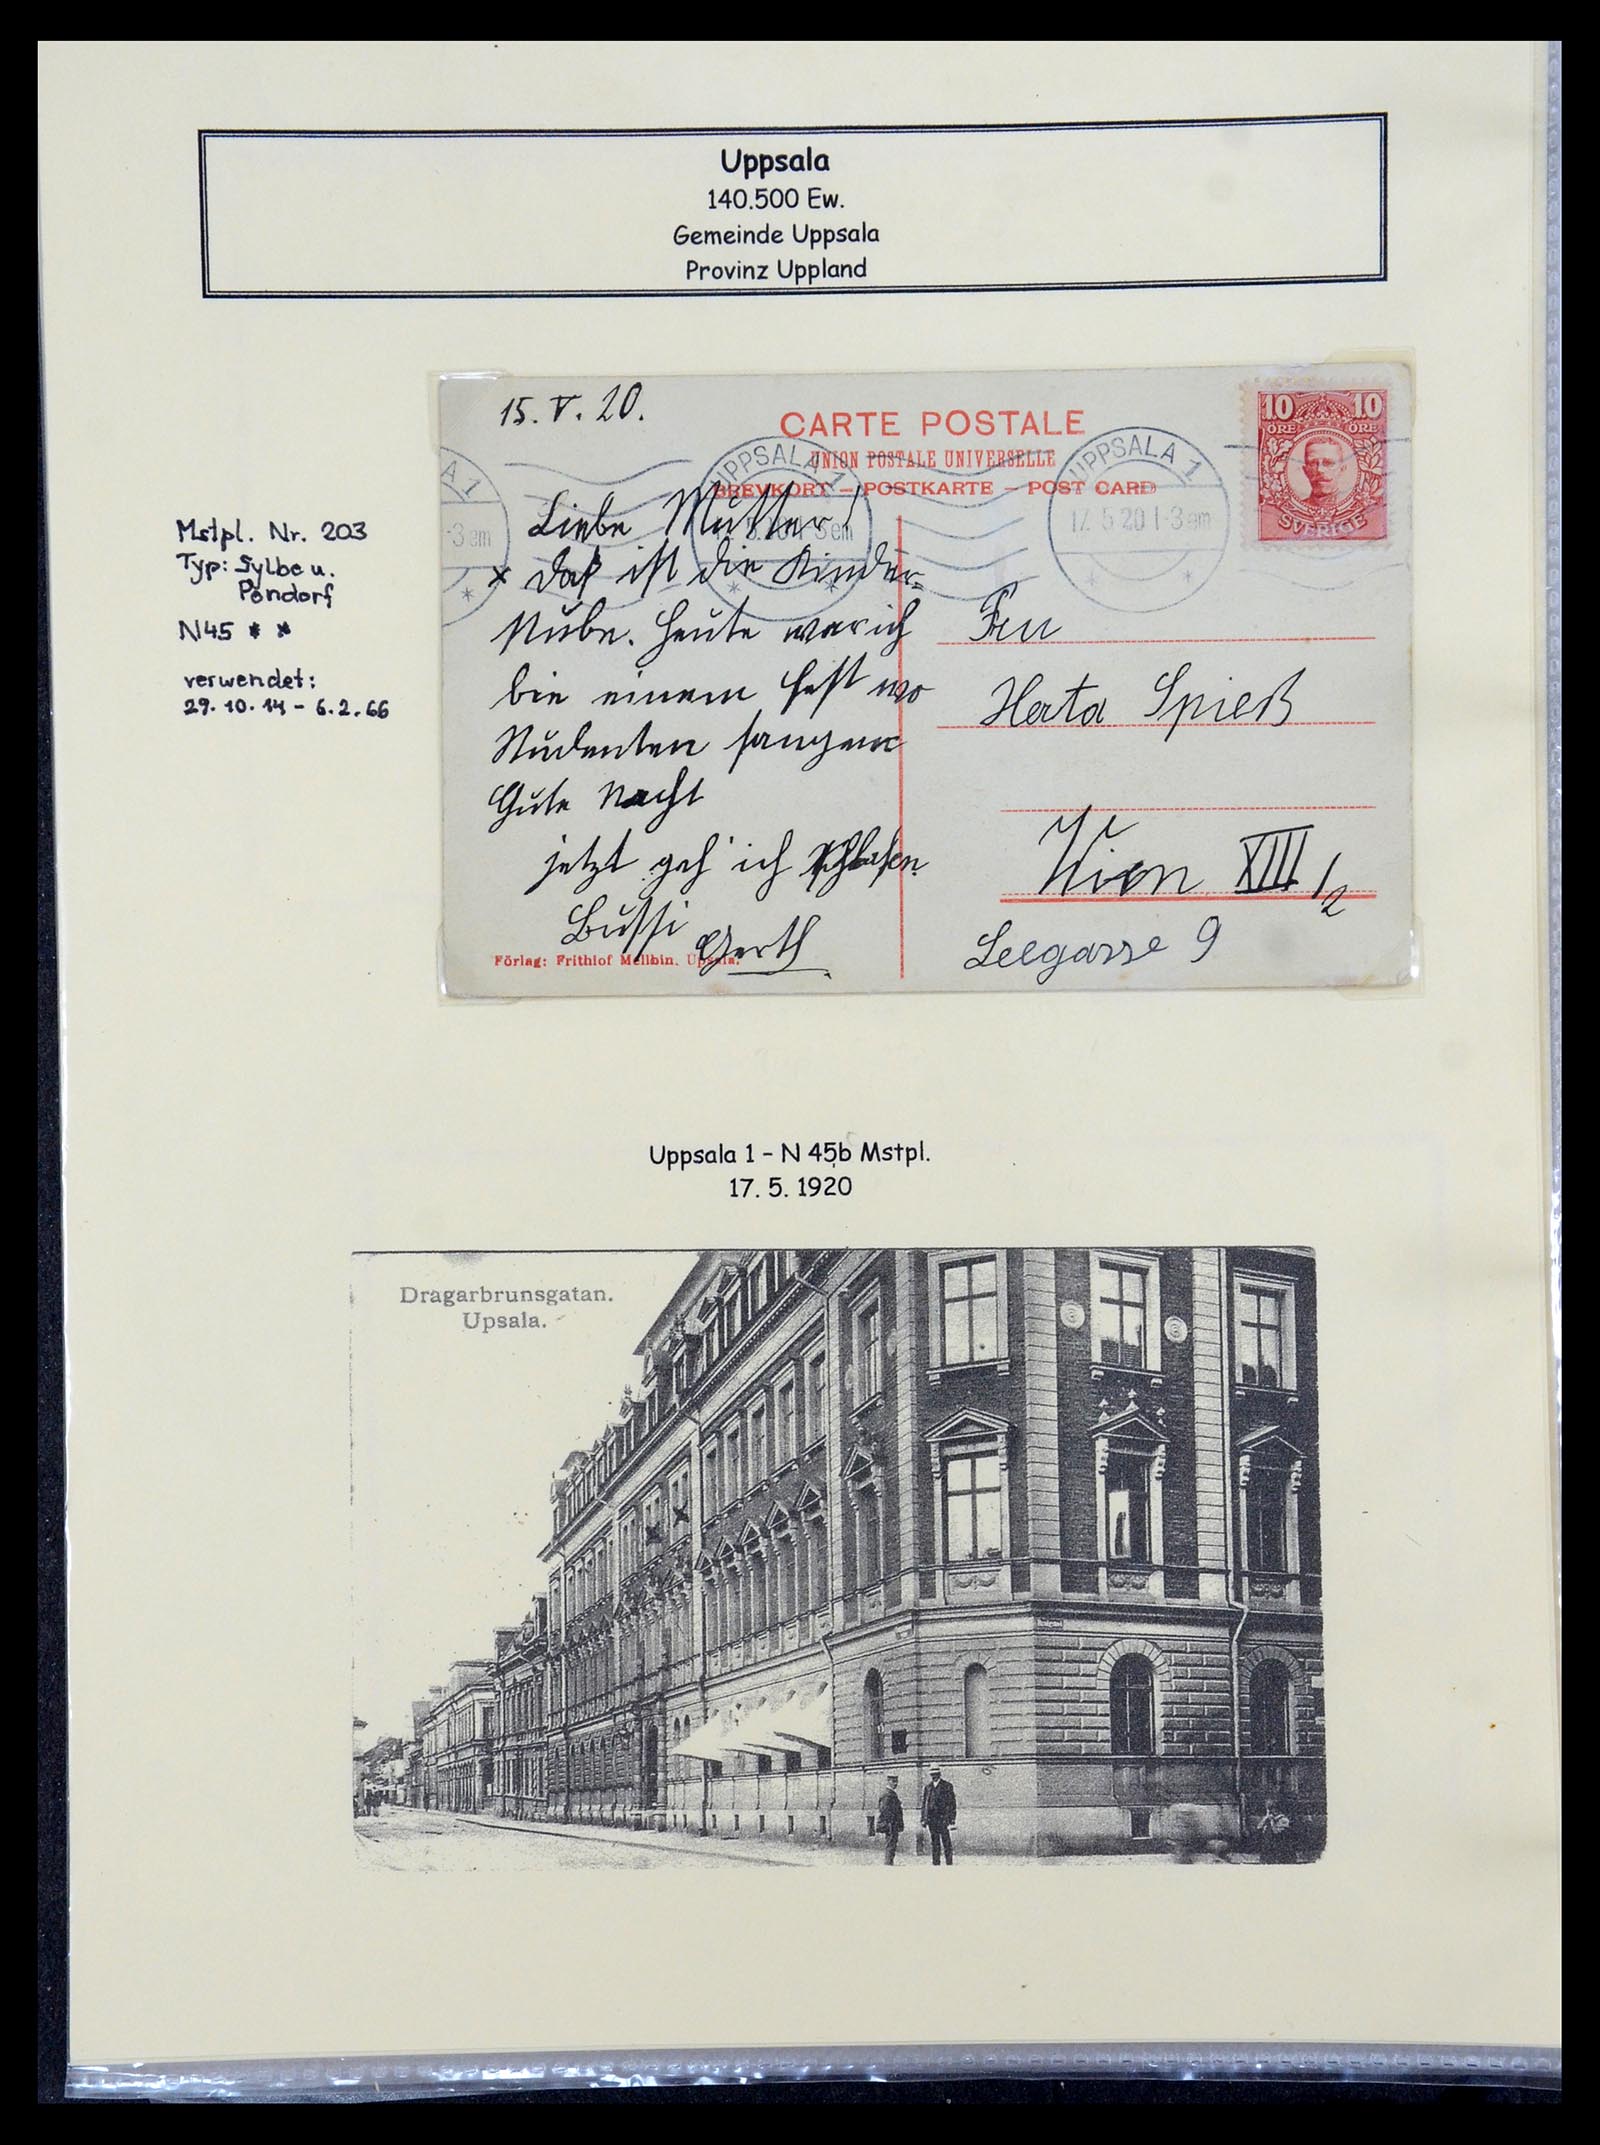 Uppsala
140.500 Ew.
Gemeinde Uppsala
Provinz Uppland
Mstpl. Nr. 203
Typ: Sylbe u.
Pondorf
N45 * *
verwendet:
29.10.14 - 6.2.66
15. V. 20.
CARTE POSTALE
UNION POSTALE UNIVERSELLE
BREVKORT – POSTKARTE – POST CARD
A 1
-3 em
UPPSALA 1
UPPSALA 1
17. 5 20 1-3 em
10 10
ÖRE ÖRE
SVERIGE
Liebe Mutter!
x Das ist die Kinder=
stube. Heute war ich
bei einem Fest wo
Studenten sangen
Gute Nacht
jetzt geh' ich schlafen.
Bussi Gerth
Förlag: Frithiof Mellbin. Upsala.
Herta Spieß
Wien XIII/2
9
Uppsala 1 – N 45b Mstpl.
17. 5. 1920
Dragarbrunsgatan.
Upsala.